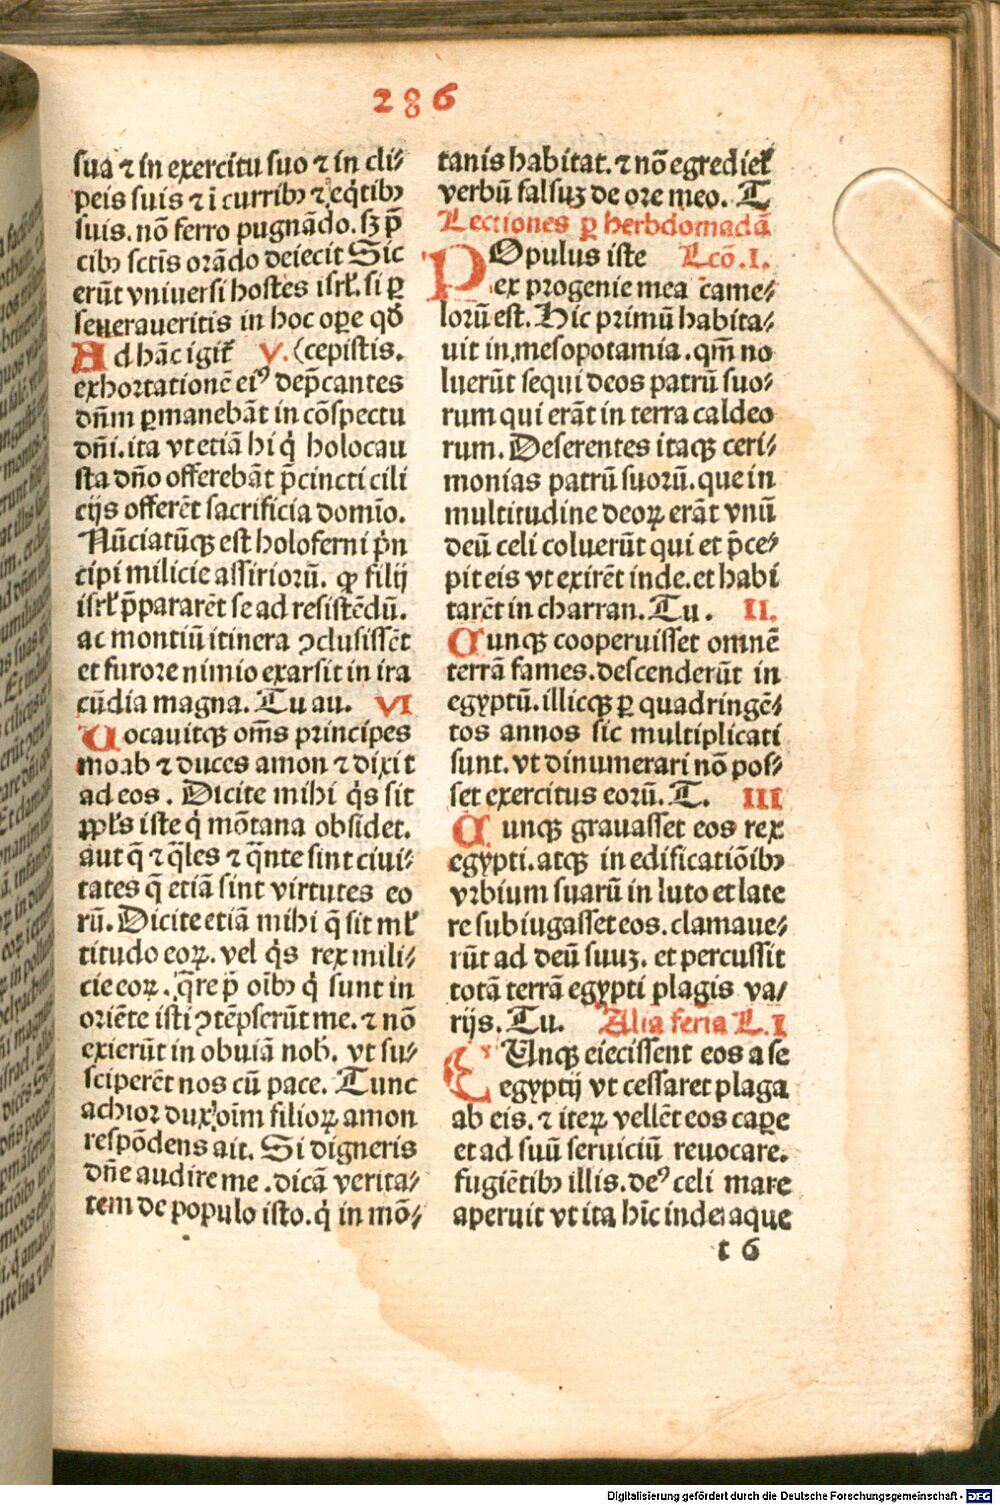 286
sua ⁊ in exercitu suo ⁊ in cli⸗
peis suis ⁊ ī curribꝫ ⁊ eq̇tibꝫ
suis. nō ferro pugnādo. sꝫ p̄
cibꝫ sctīs orādo deiecit Sic
erūt vniuersi hostes isrł. si ꝑ
seueraueritis in hoc oꝑe qď
Ad hāc igiť V. (cepistis.
exhortationē eiꝰ dep̄cantes
dn̄m ꝑmanebāt in cōspectu
dn̄i. ita vt etiā hi q̇ holocau
sta dn̄o offerebāt p̄cincti cili
cijs offerēt sacrificia domīo.
Nūciatūqꝫ est holoferni ṗn
cipi milicie assiriorū. ꝙ filij
isrł p̄pararēt se ad resistēdū.
ac montiū itinera ꝯclusissēt
et furore nimio exarsit in ira
cūdia magna. Tu au. VI
Uocauitqꝫ om̄s principes
moab ⁊ duces amon ⁊ dixit
ad eos. Dicite mihi q̇s sit
ꝓpłs iste q̇ mōtana obsidet.
aut q̄ ⁊ q̄les ⁊ q̄nte sint ciui⸗
tates q̄ etiā sint virtutes eo
rū. Dicite etiā mihi q̄ sit mł
titudo eoꝝ. vel q̇s rex mili⸗
cie eoꝝ. q̄re p̄ oībꝫ q̇ sunt in
oriēte isti ꝯtēpserūt me. ⁊ nō
exierūt in obuiā nob̄. vt su⸗
sciperēt nos cū pace. Tunc
achior dux oīm filioꝝ amon
respōdens ait. Si digneris
dn̄e audire me. dicā verita⸗
tem de populo isto. q̇ in mō⸗
tanis habitat. ⁊ nō egredieť
verbū falsuꝫ de ore meo. T
Lectiones ꝑ herbdomadā
POpulus iste Lcō. I.
ex progenie mea came⸗
lorū est. Hic primū habita⸗
uit in mesopotamia. qm̄ no
luerūt sequi deos patrū suo⸗
rum qui erāt in terra caldeo
rum. Deserentes itaqꝫ ceri⸗
monias patrū suorū. que in
multitudine deoꝝ erāt vnū
deū celi coluerūt qui et p̄ce⸗
pit eis vt exirēt inde. et habi
tarēt in charran. Tu. II.
Cunqꝫ cooperuisset omnē
terrā fames. descenderūt in
egyptū. illicqꝫ ꝑ quadringē⸗
tos annos sic multiplicati
sunt. vt dinumerari nō pos⸗
set exercitus eorū. T. III
Cunqꝫ grauasset eos rex
egypti. atqꝫ in edificatiōibꝫ
vrbium suarū in luto et late
re subiugasset eos. clamaue⸗
rūt ad deū suuꝫ. et percussit
totā terrā egypti plagis va⸗
rijs. Tu. Alia feria L. I
CUnqꝫ eiecissent eos a se
egyptij vt cessaret plaga
ab eis. ⁊ iteꝝ vellēt eos caꝑe
et ad suū seruiciū reuocare.
fugiētibꝫ illis. deꝰ celi mare
aperuit vt ita hīc inde aque
t 6
Digitalisierung gefördert durch die Deutsche Forschungsgemeinschaft - DFG